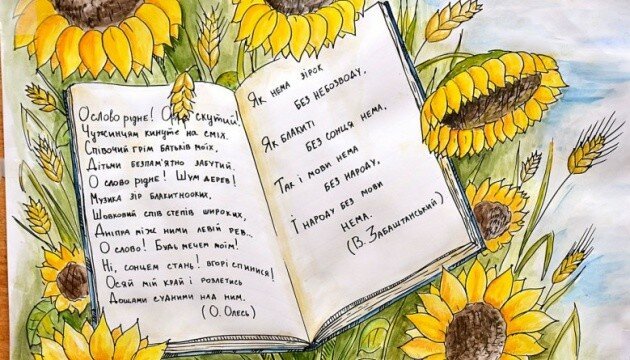 О слово рідне! скутий!
Чужинцям кинуте на сміх.
Співочий грім батьків моїх,
Дітьми безпам'ятно забутий.
О слово рідне! Шум дерев!
Музика зір блакитнооких,
Шовковий спів степів широких,
Дніпра між ними левій рев...
О слово! Будь мечем моїм!
Ні, сонцем стань! вгорі спинися!
Осяй мій край і розлетись
Дощами судними над ним.
(О. Олесь)
Як нема зірок
без небозводу,
Як блакиті
без сонця нема,
Так і мови нема
без народу,
І народу без мови
нема.
(В. Забаштанський)